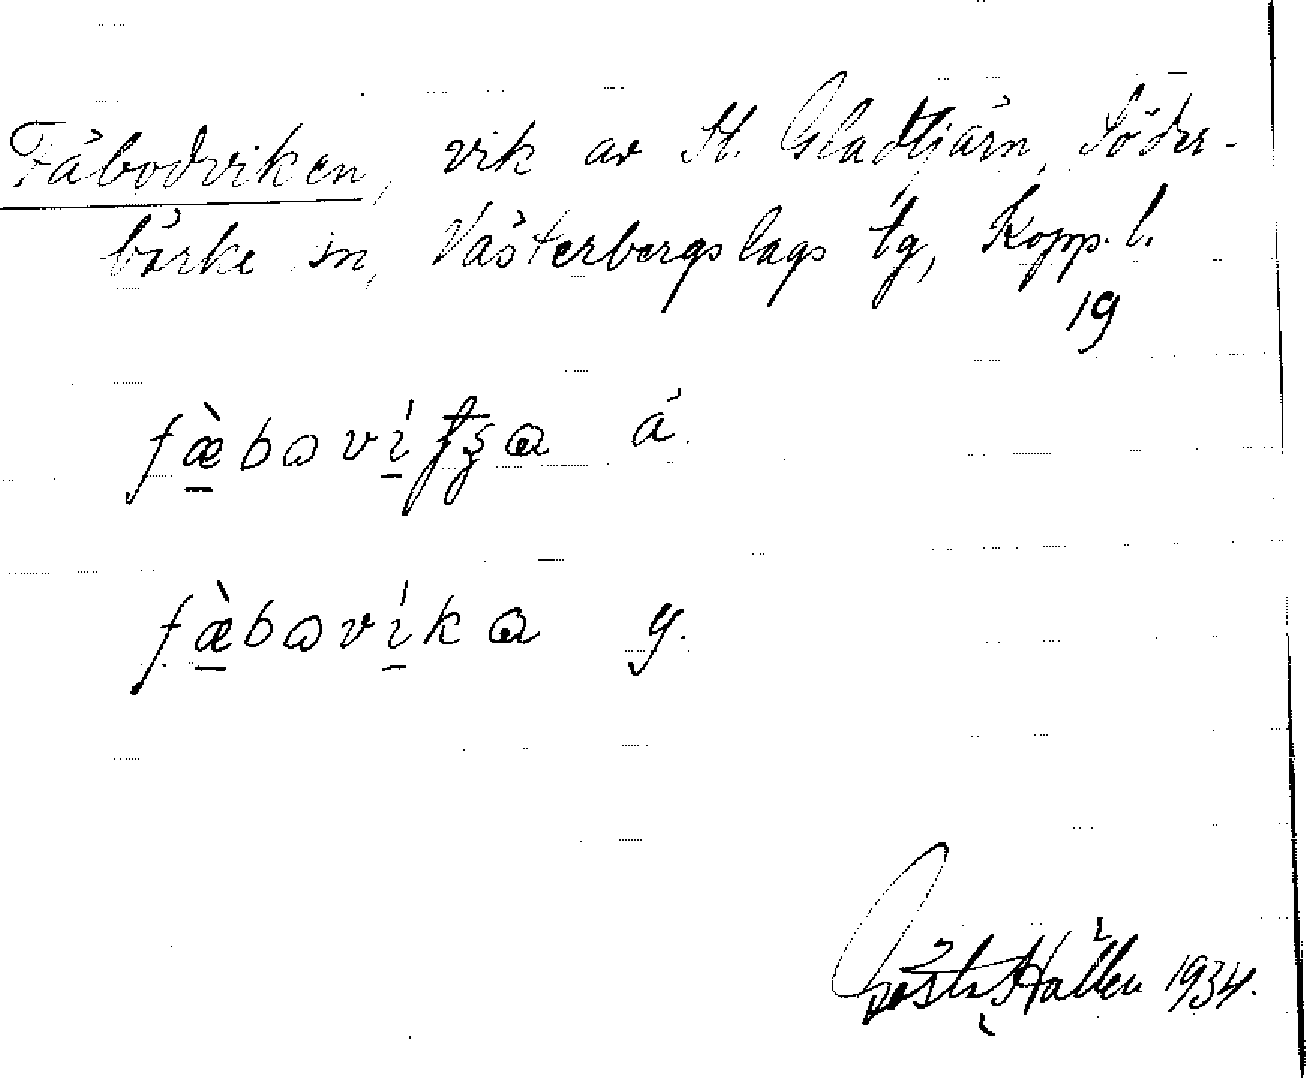 Fäbodviken, vik av St. Gladtjärn, Söder-
bärke sn, Västerbergslags tg, Kopp. l.
19
fæ̀bɷví ɷ ä.
fæ̀bɷvíkɷ y.
Gösta Hallén 1934.